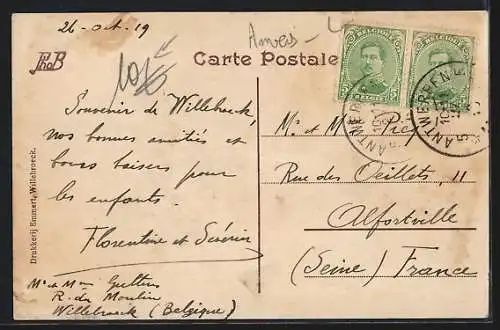 26-oct.19
Anvers
PhoB
Carte Postale
BELGIQUE BELGIQUE
5 BELGIË 5
ANTWERPEN
ANTWERPEN
Souvenir de Willebroeck,
nos bonnes amitiés et
bons baisers pour
les enfants.
Florentine et Séverin
Mr et M Pie
Rue des Oeillets, 11
Alfortville
(Seine) France
Mr et Mme
R. du Moulin
Willebroeck (Belgique)
Drukkerij Emmert, Willebroeck.